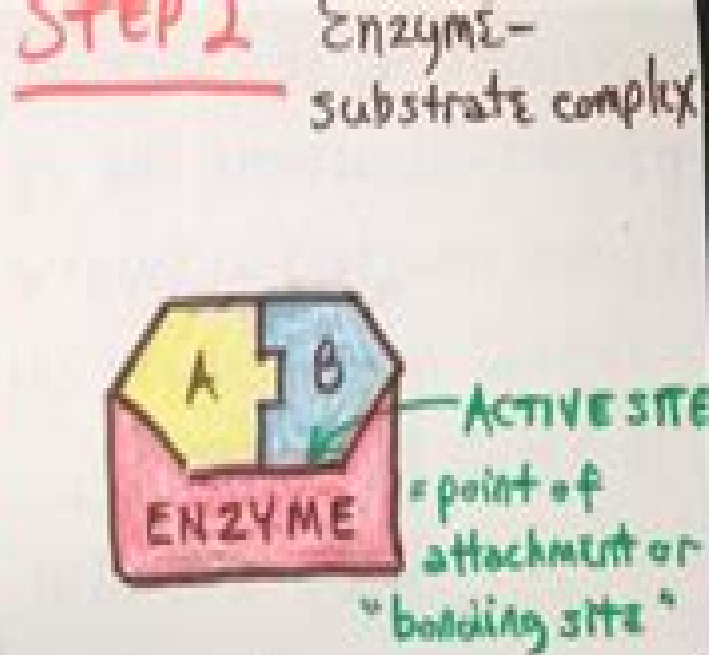 STEP 2
Enzyme-
substrate complex
A
B
ACTIVE SITE
= point of
attachment or
"bonding site"
ENZYME